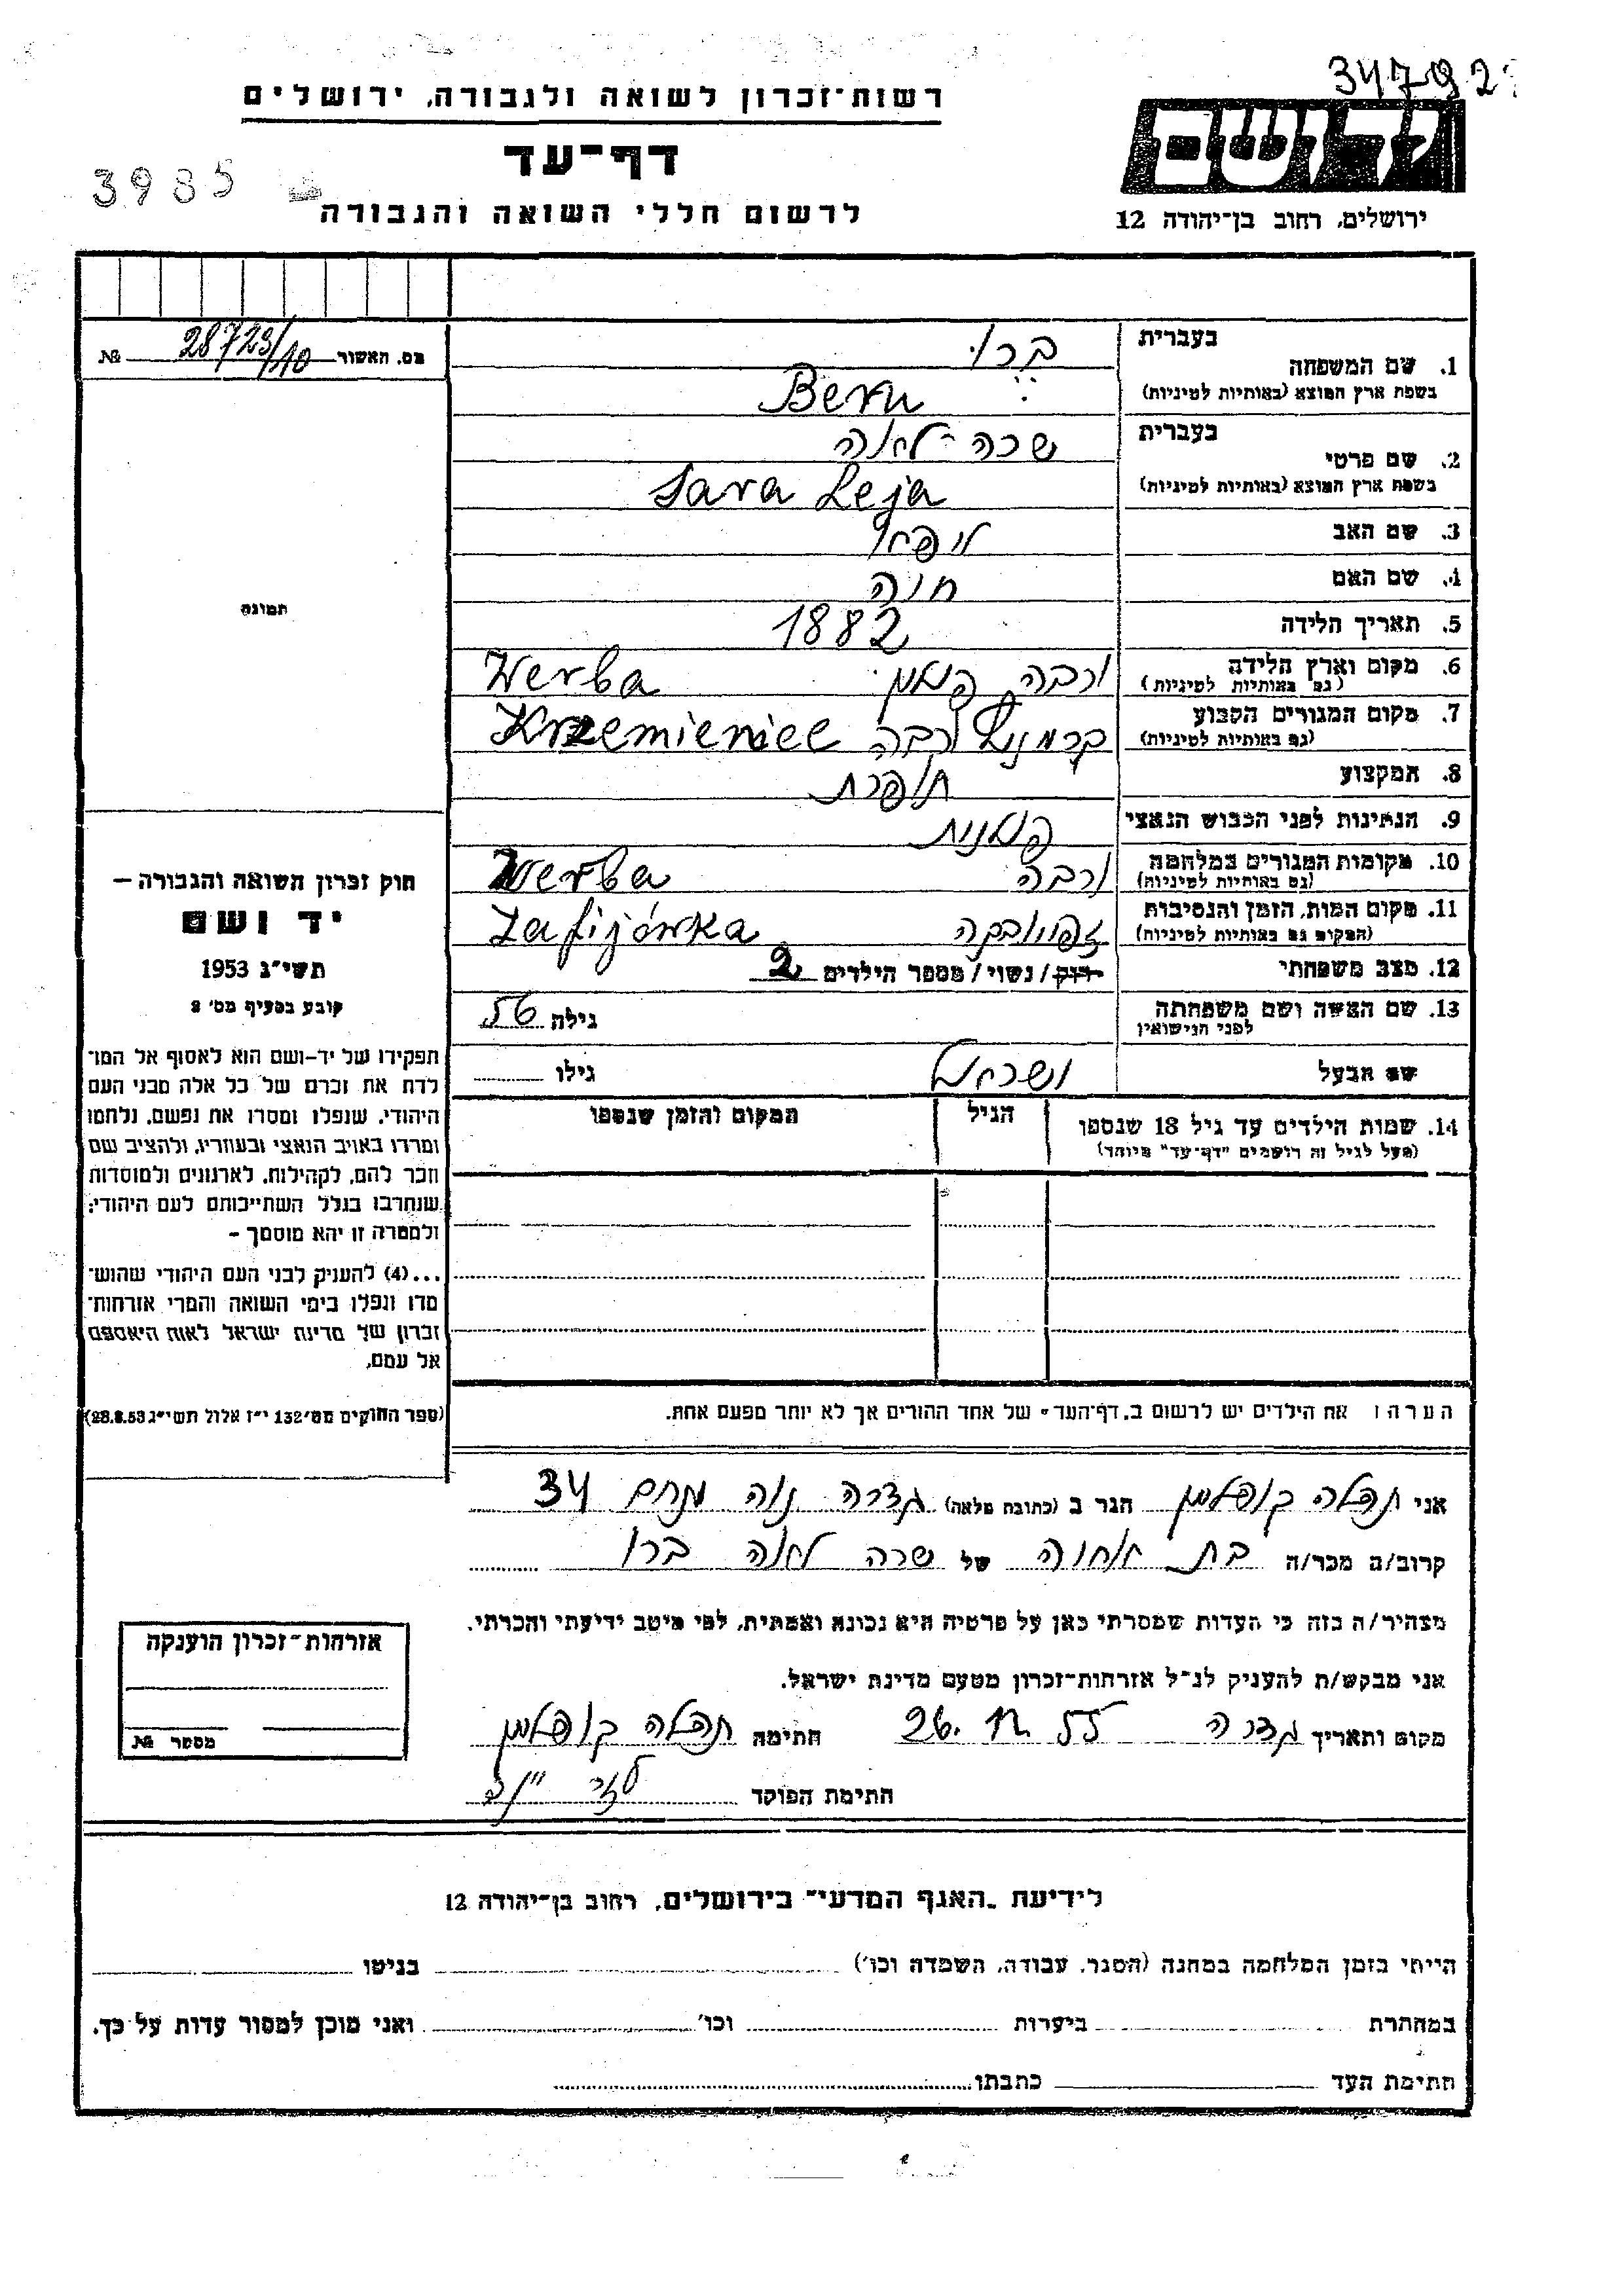 34792
רשות־זכרון לשואה ולגבורה, ירושלים
דף־עד
3985
לרשום חללי השואה והגבורה
יד ושם
ירושלים, רחוב בן־יהודה 12
מס. האשור 28723/10 №
בעברית
1. שם המשפחה ברו
בשפת ארץ המוצא (באותיות לטיניות) Beru
בעברית שרה-לאה
2. שם פרטי
בשפת ארץ המוצא (באותיות לטיניות) Sara Leja
3. שם האב
4. שם האם חנה
5. תאריך הלידה 1882
6. מקום וארץ הלידה ורבה פולין Werba
(גם באותיות לטיניות)
7. מקום המגורים הקבוע קרמניץ ורבה Krzemieniec
(גם באותיות לטיניות)
8. המקצוע תופרת
9. הנתינות לפני הכבוש הנאצי פולנית
10. מקומות המגורים במלחמה ורבה Werba
(גם באותיות לטיניות)
11. מקום המות, הזמן והנסיבות Zafijówka
(המקום גם באותיות לטיניות)
12. מצב משפחתי רוק/נשוי/מספר הילדים 2
13. שם האשה ושם משפחתה גילה 56
לפני הנישואין
שם הבעל גילו
14. שמות הילדים עד גיל 18 שנספו הגיל המקום והזמן שנספו
(מעל לגיל זה רושמים "דף־עד" מיוחד)
תמונה
חוק זכרון השואה והגבורה —
יד ושם
תשי"ג 1953
קובע בסעיף מס' 2
תפקידו של יד-ושם הוא לאסוף אל המו־
לדת את זכרם של כל אלה מבני העם
היהודי, שנפלו ומסרו את נפשם, נלחמו
ומרדו באויב הנאצי ובעוזריו, ולהציב שם
וזכר להם, לקהילות, לארגונים ולמוסדות
שנחרבו בגלל השתייכותם לעם היהודי;
ולמטרה זו יהא מוסמך -
...(4) להעניק לבני העם היהודי שהוש־
מדו ונפלו בימי השואה והמרי אזרחות־
זכרון של מדינת ישראל לאות היאספם
אל עמם.
(ספר החוקים מס' 132 י"ז אלול תשי"ג 28.8.53)
הערה: את הילדים יש לרשום ב„דף־העד" של אחד ההורים אך לא יותר מפעם אחת.
אני תהלה קופלמן הגר ב (כתובת מלאה) גדרה נוה מנחם 34
קרוב/ה מכר/ה בת אחותה של שרה לאה ברו
מצהיר/ה בזה כי העדות שמסרתי כאן על פרטיה היא נכונה ואמתית, לפי מיטב ידיעתי והכרתי.
אני מבקש/ת להעניק לנ"ל אזרחות־זכרון מטעם מדינת ישראל.
מקום ותאריך גדרה 26.12.55 חתימה תהלה קופלמן
חתימת הפוקד
אזרחות־זכרון הוענקה
מספר №
לידיעת „האגף המדעי" בירושלים, רחוב בן־יהודה 12
הייתי בזמן המלחמה במחנה (הסגר, עבודה, השמדה וכו') בגיטו
במחתרת ביערות וכו' ואני מוכן למסור עדות על כך.
חתימת העד כתבתו